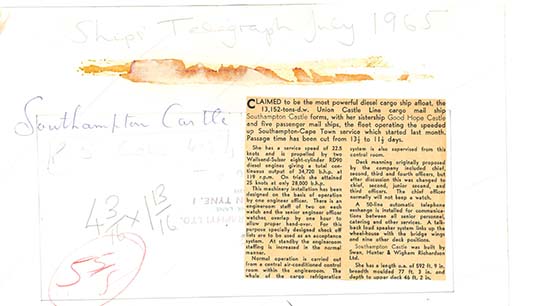 Ships' Telegraph July 1965
Southampton Castle
CLAIMED to be the most powerful diesel cargo ship afloat, the
13,152-tons-d.w. Union Castle Line cargo mail ship
Southampton Castle forms, with her sistership Good Hope Castle
and five passenger mail ships, the fleet operating the speeded
up Southampton-Cape Town service which started last month.
Passage time has been cut from 13½ to 11½ days.
She has a service speed of 22.5
knots and is propelled by two
Wallsend-Sulzer eight-cylinder RD90
diesel engines giving a total con-
tinuous output of 34,720 b.h.p. at
119 r.p.m. On trials she attained
25 knots at only 28,000 b.h.p.
This machinery installation has been
designed on the basis of operation
by one engineer officer. There is an
engineroom staff of two on each
watch and the senior engineer officer
watches overlap by one hour to
allow proper hand-over. For this
purpose specially designed check off
lists are to be used as an acceptance
system. At standby the engineroom
staffing is increased in the normal
manner.
Normal operation is carried out
from a central air-conditioned control
room within the engineroom. The
whole of the cargo refrigeration
system is also supervised from this
control room.
Deck manning originally proposed
by the company included chief,
second, third and fourth officers, but
after discussion this was changed to
chief, second, junior second, and
third officers. The chief officer
normally will not keep a watch.
A 50-line automatic telephone
exchange is installed for communica-
tions between all senior personnel,
catering and other services. A talk-
back loud speaker system links up the
wheelhouse with the bridge wings
and nine other deck positions.
Southampton Castle was built by
Swan, Hunter & Wigham Richardson
Ltd.
She has a length o.a. of 592 ft. 9 in,
breadth moulded 77 ft. 3 in. and
depth to upper deck 46 ft. 2 in.
4 3/16 x 1 13/16